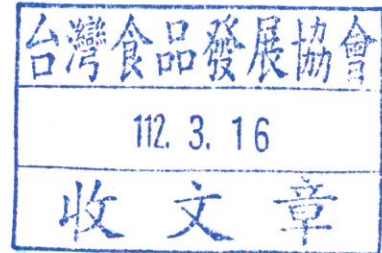 台灣食品發展協會
112. 3. 16
收文章